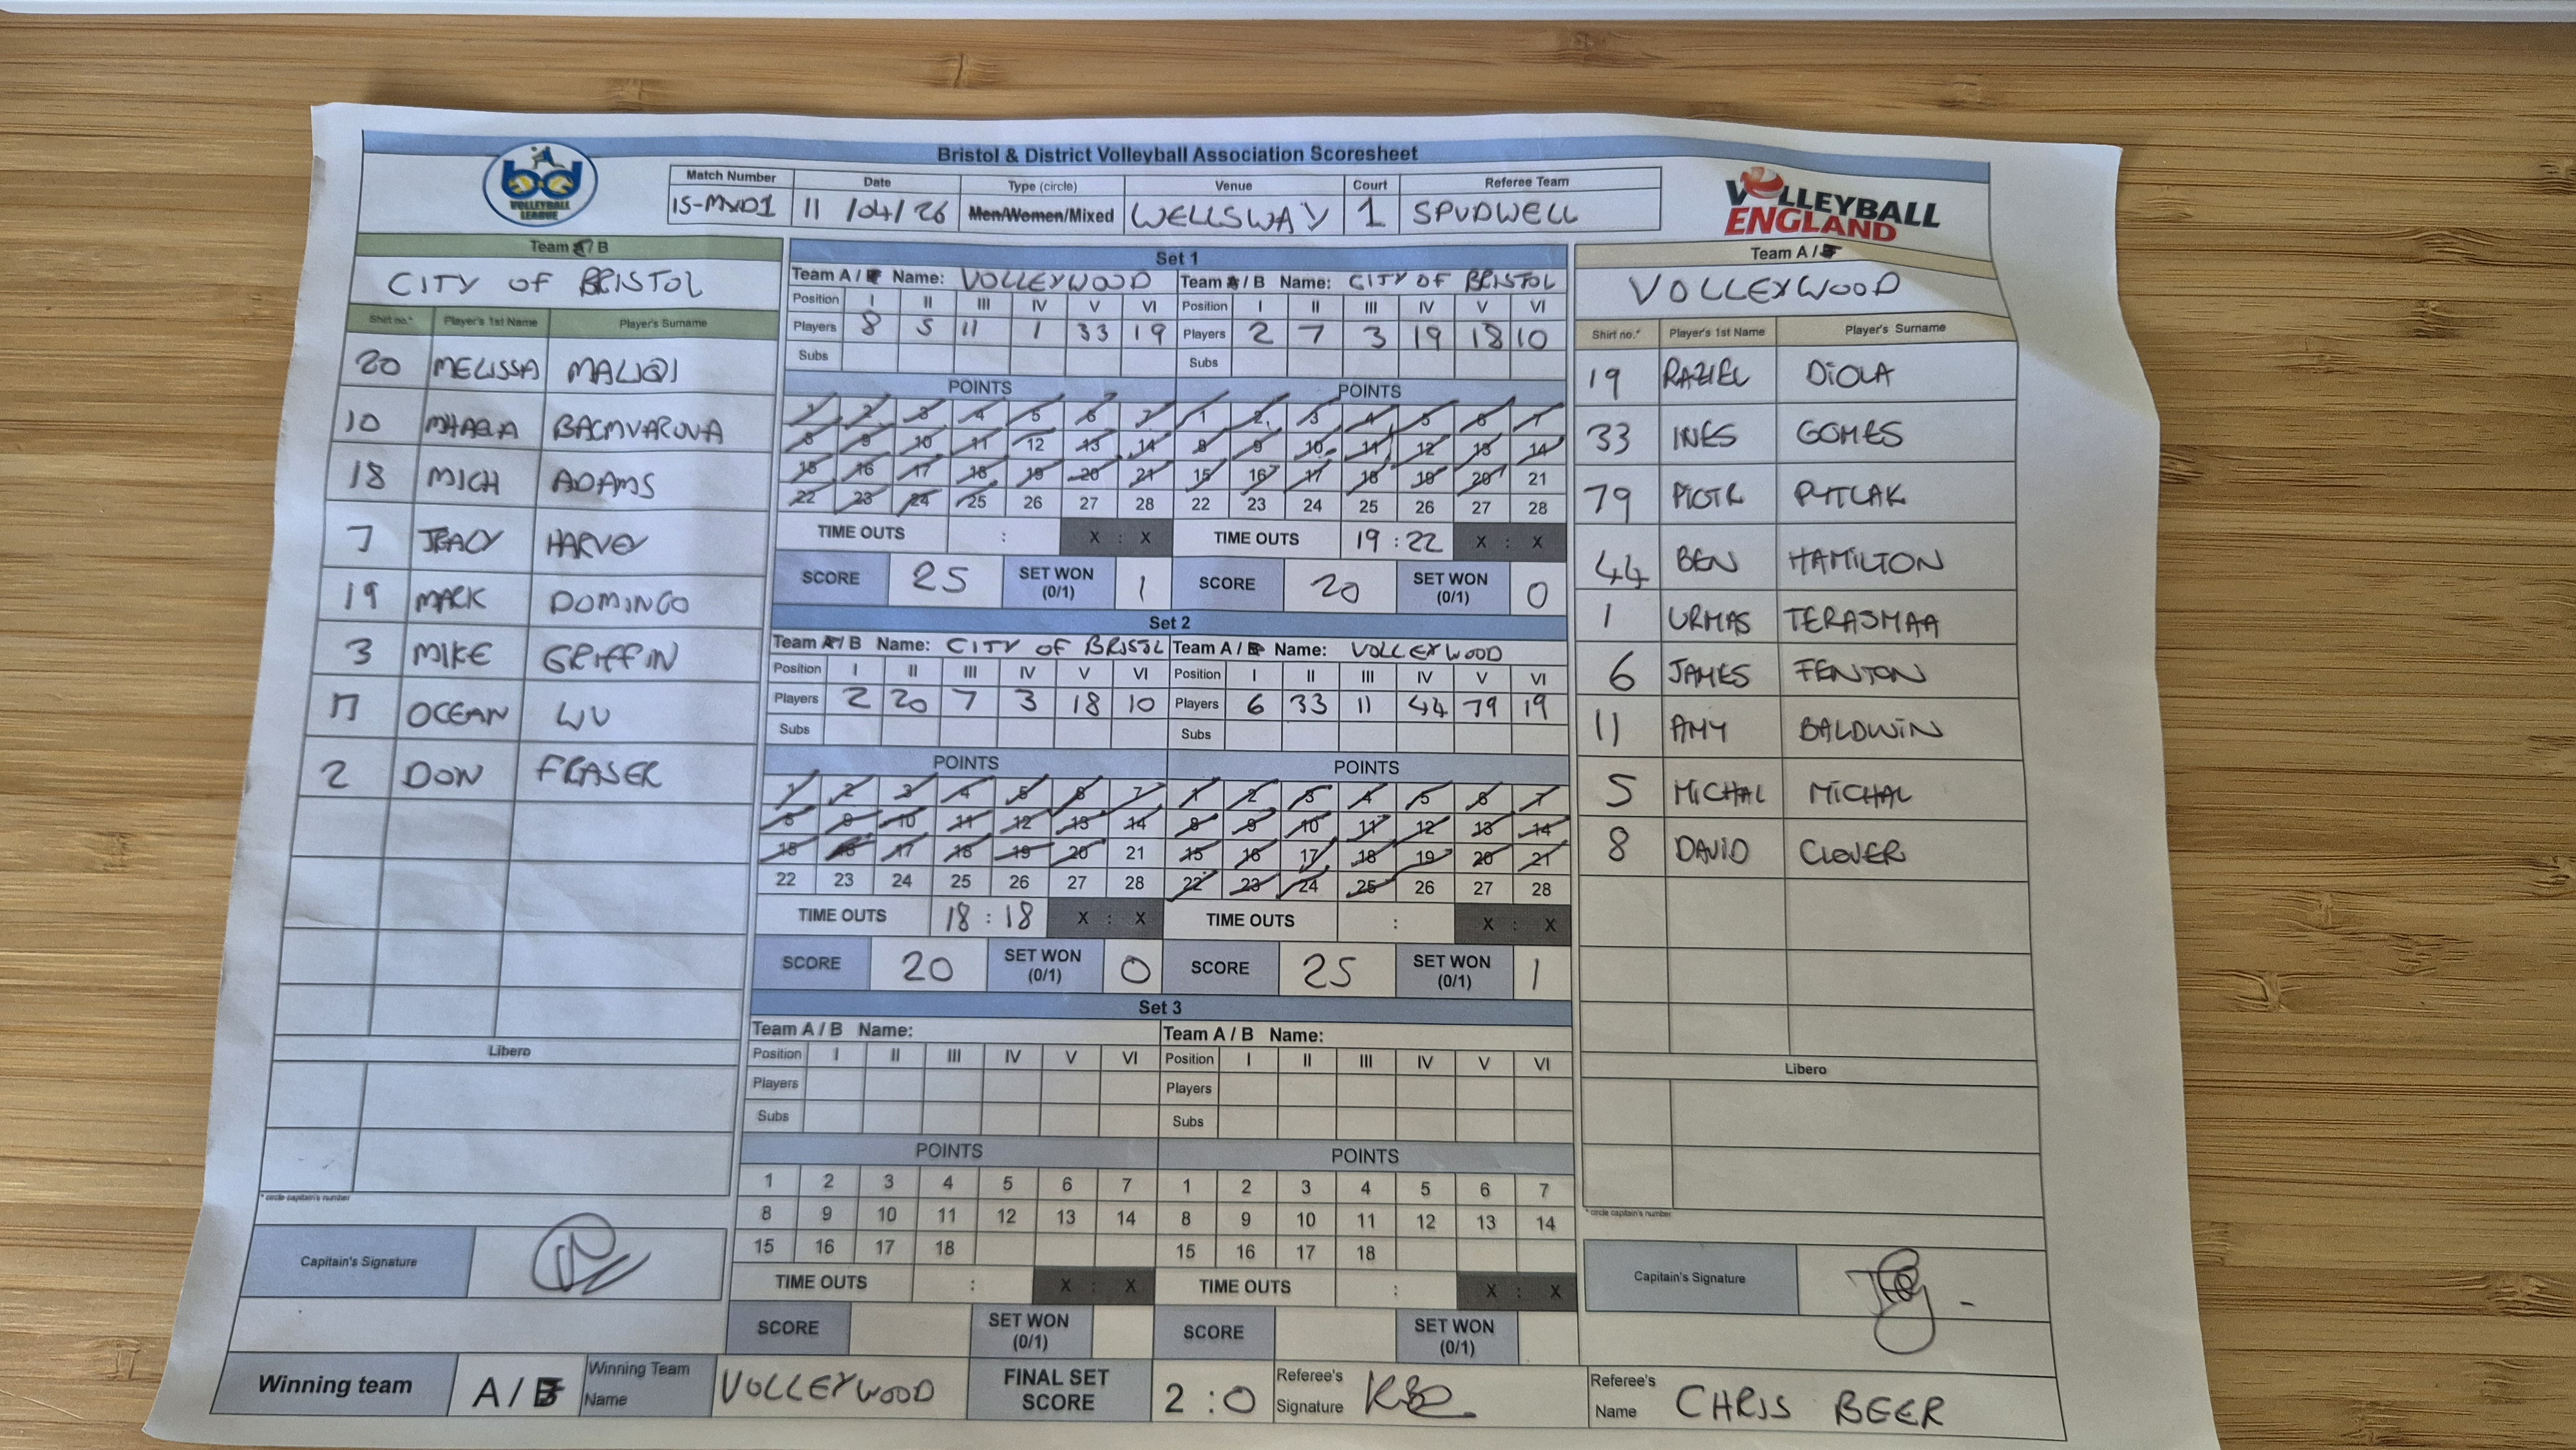 Bristol & District Volleyball Association Scoresheet
bd VOLLEYBALL LEAGUE
Match Number Date Type (circle) Venue Court Referee Team
15-MXD1 11/04/26 Men/Women/Mixed WELLSWAY 1 SPUDWELL
VOLLEYBALL ENGLAND
Team A / B
CITY OF BRISTOL
Shirt no.* Player's 1st Name Player's Surname
20 MELISSA MALIQI
10
18 MICH ADAMS
7 TRACY HARVEY
19 MARK DOMINGO
3 MIKE GRIFFIN
17 OCEAN WU
2 DON FRASER
Libero
* circle captain's number
Capitain's Signature
Set 1
Team A / B Name: VOLLEYWOOD Team A / B Name: CITY OF BRISTOL
Position I II III IV V VI Position I II III IV V VI
Players 8 5 11 1 33 19 Players 2 7 3 19 18 10
Subs Subs
POINTS POINTS
1 2 3 4 5 6 7 1 2 3 4 5 6 7
8 9 10 11 12 13 14 8 9 10 11 12 13 14
15 16 17 18 19 20 21 15 16 17 18 19 20 21
22 23 24 25 26 27 28 22 23 24 25 26 27 28
TIME OUTS : X : X TIME OUTS 19 : 22 X : X
SCORE 25 SET WON (0/1) 1 SCORE 20 SET WON (0/1) 0
Set 2
Team A / B Name: CITY OF BRISTOL Team A / B Name: VOLLEYWOOD
Position I II III IV V VI Position I II III IV V VI
Players 2 20 7 3 18 10 Players 6 33 11 44 79 19
Subs Subs
POINTS POINTS
1 2 3 4 5 6 7 1 2 3 4 5 6 7
8 9 10 11 12 13 14 8 9 10 11 12 13 14
15 16 17 18 19 20 21 15 16 17 18 19 20 21
22 23 24 25 26 27 28 22 23 24 25 26 27 28
TIME OUTS 18 : 18 X : X TIME OUTS : X : X
SCORE 20 SET WON (0/1) 0 SCORE 25 SET WON (0/1) 1
Set 3
Team A / B Name: Team A / B Name:
Position I II III IV V VI Position I II III IV V VI
Players Players
Subs Subs
POINTS POINTS
1 2 3 4 5 6 7 1 2 3 4 5 6 7
8 9 10 11 12 13 14 8 9 10 11 12 13 14
15 16 17 18 15 16 17 18
TIME OUTS : X : X TIME OUTS : X : X
SCORE SET WON (0/1) SCORE SET WON (0/1)
Team A / B
VOLLEYWOOD
Shirt no.* Player's 1st Name Player's Surname
19 RAZIEL DIOLA
33 INES GOMES
79 PIOTR PYTLAK
44 BEN HAMILTON
1 URMAS TERASMAA
6 JAMES FENTON
11 AMY BALDWIN
5 MICHAL MICHAL
8 DAVID CLOVER
Libero
* circle captain's number
Capitain's Signature
Winning team A / B Winning Team Name VOLLEYWOOD FINAL SET SCORE 2 : 0 Referee's Signature Referee's Name CHRIS BEER